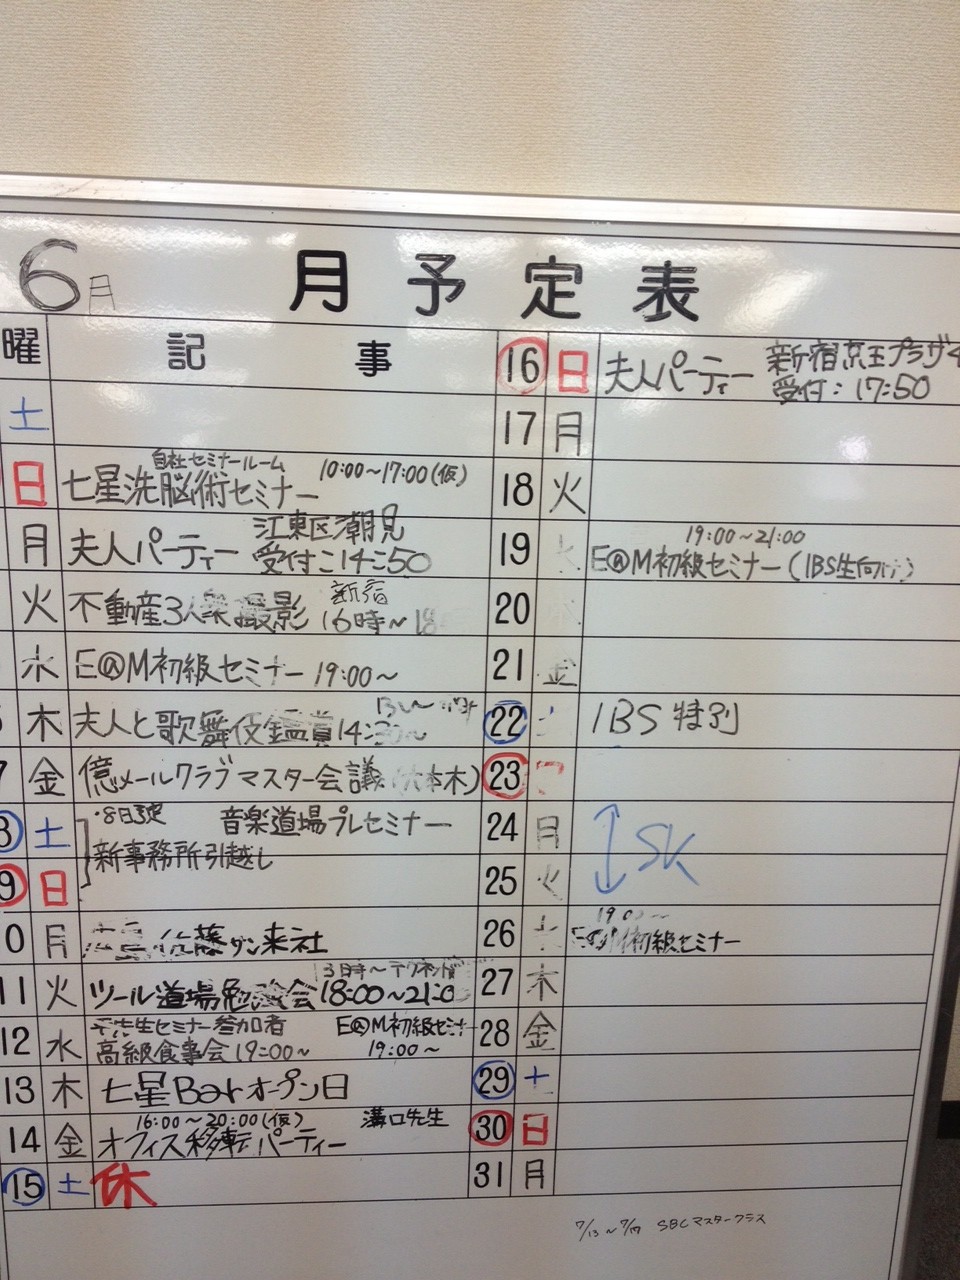 6月 月予定表
曜 記事
土
日 七星洗脳術セミナー 自社セミナールーム 10:00～17:00(仮)
月 夫人パーティー 江東区潮見 受付:14:50
火 不動産3人衆撮影 新宿 16時～18
水 E@M初級セミナー 19:00～
木 夫人と歌舞伎鑑賞 14:
7 金 億メールクラブマスター会議(六本木)
8 土 ・8日 音楽道場プレセミナー
新事務所引越し
9 日
0 月 佐藤サン来社
11 火 ツール道場勉強会 18:00～21:0
12 水 先生セミナー参加者 E@M初級セミナ
高級食事会19:00～ 19:00～
13 木 七星Barオープン日
14 金 16:00～20:00(仮) 溝口先生
オフィス移転パーティー
15 土 休
16 日 夫人パーティー 新宿京王プラザ
受付:17:50
17 月
18 火
19 水 19:00～21:00
E@M初級セミナー(IBS生向け)
20
21 金
22 土 IBS特別
23
24 月 SK
25 火
26 19:00～
E@M初級セミナー
27 木
28 金
29 土
30 日
31 月
7/13～7/ SBCマスタークラス